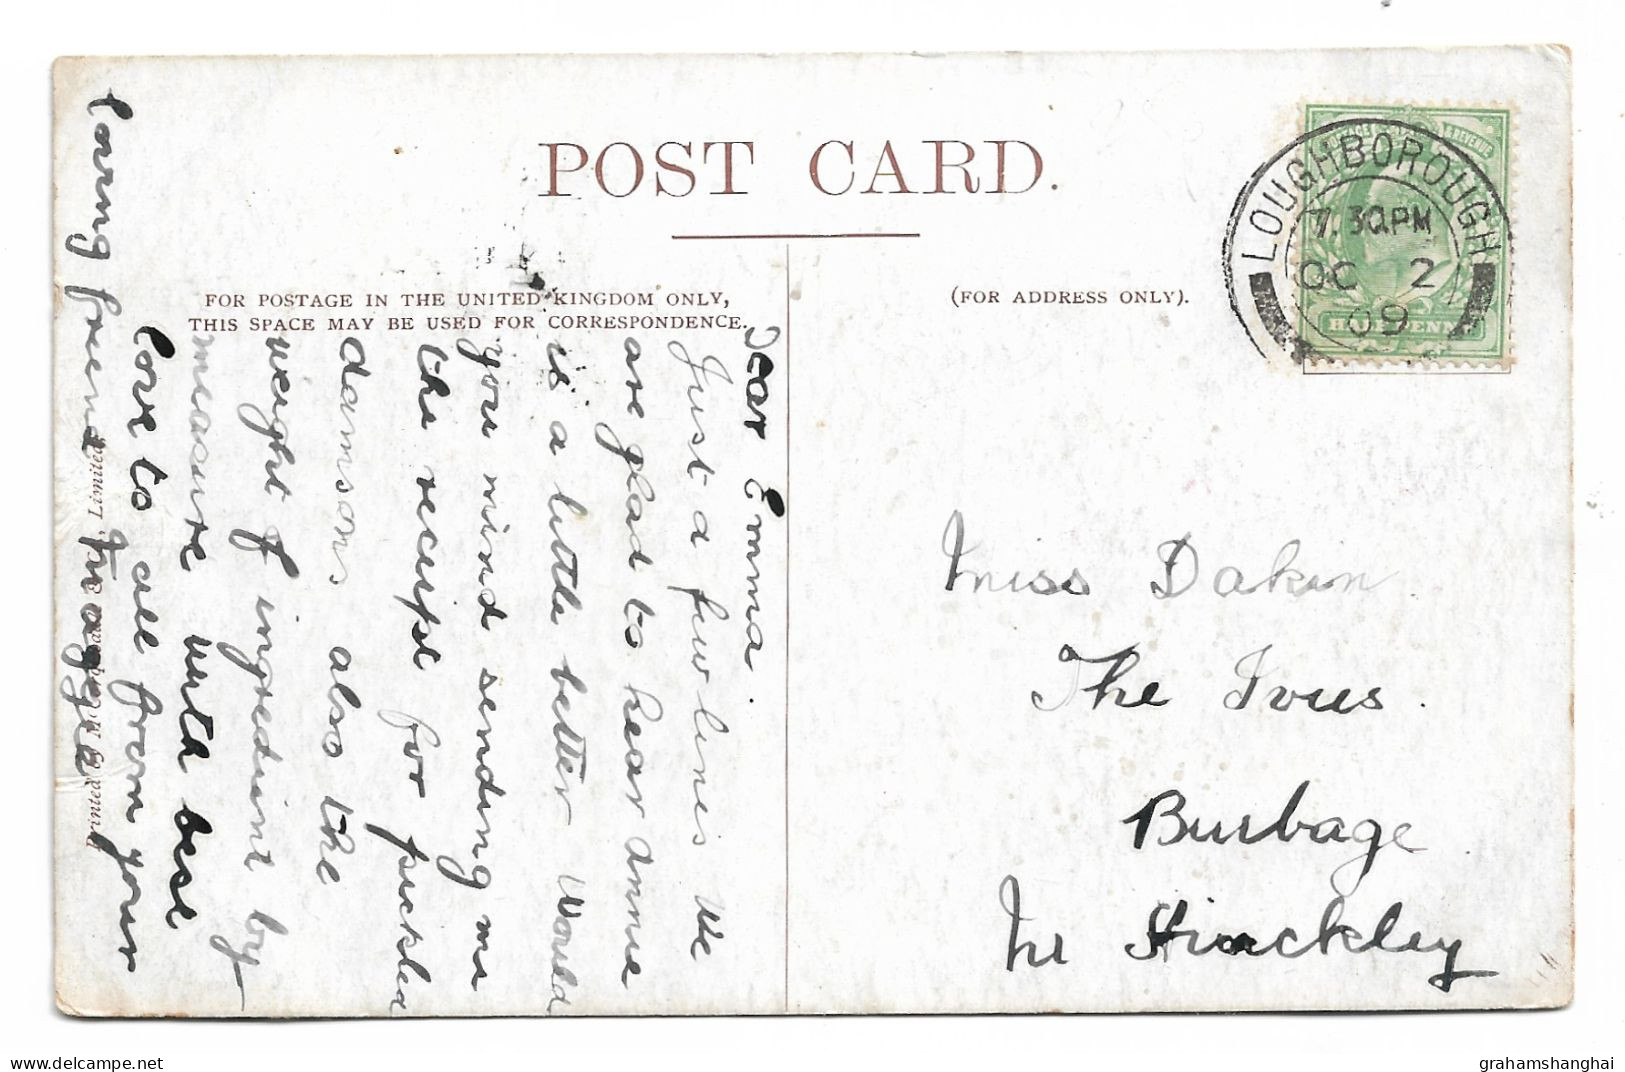 POST CARD.
FOR POSTAGE IN THE UNITED KINGDOM ONLY,
THIS SPACE MAY BE USED FOR CORRESPONDENCE.
(FOR ADDRESS ONLY).
POSTAGE & REVENUE
HALFPENNY
LOUGHBOROUGH
7.30PM
OC 2
09
Dear Emma.
Just a few lines We
are glad to hear Annie
is a little better Would
you mind sending me
the recipe for pickled
damsons also the
weight of ingredient by
measure with best
love to all from your
loving friend
Miss Dakin
The Ivies.
Burbage
Nr Hinckley
Printed
Limited
www.delcampe.net
grahamshanghai